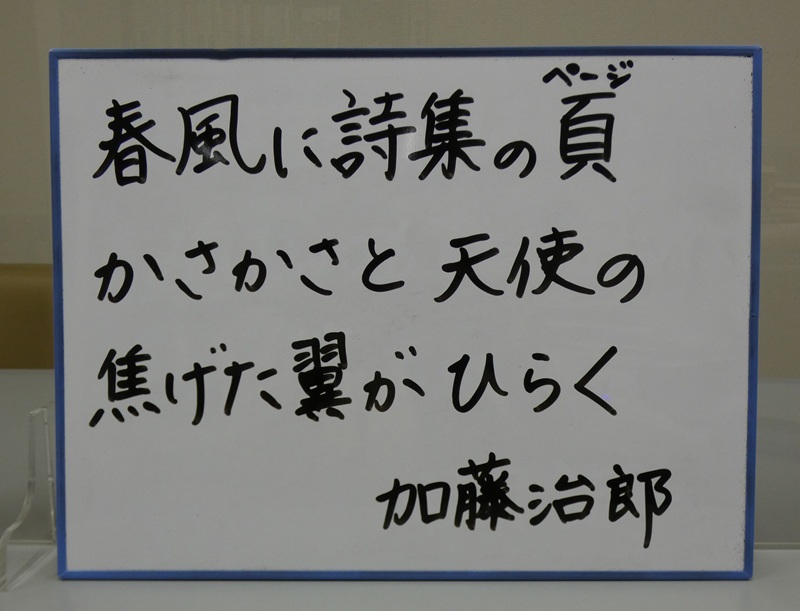 ページ
春風に詩集の頁
かさかさと天使の
焦げた翼がひらく
加藤治郎